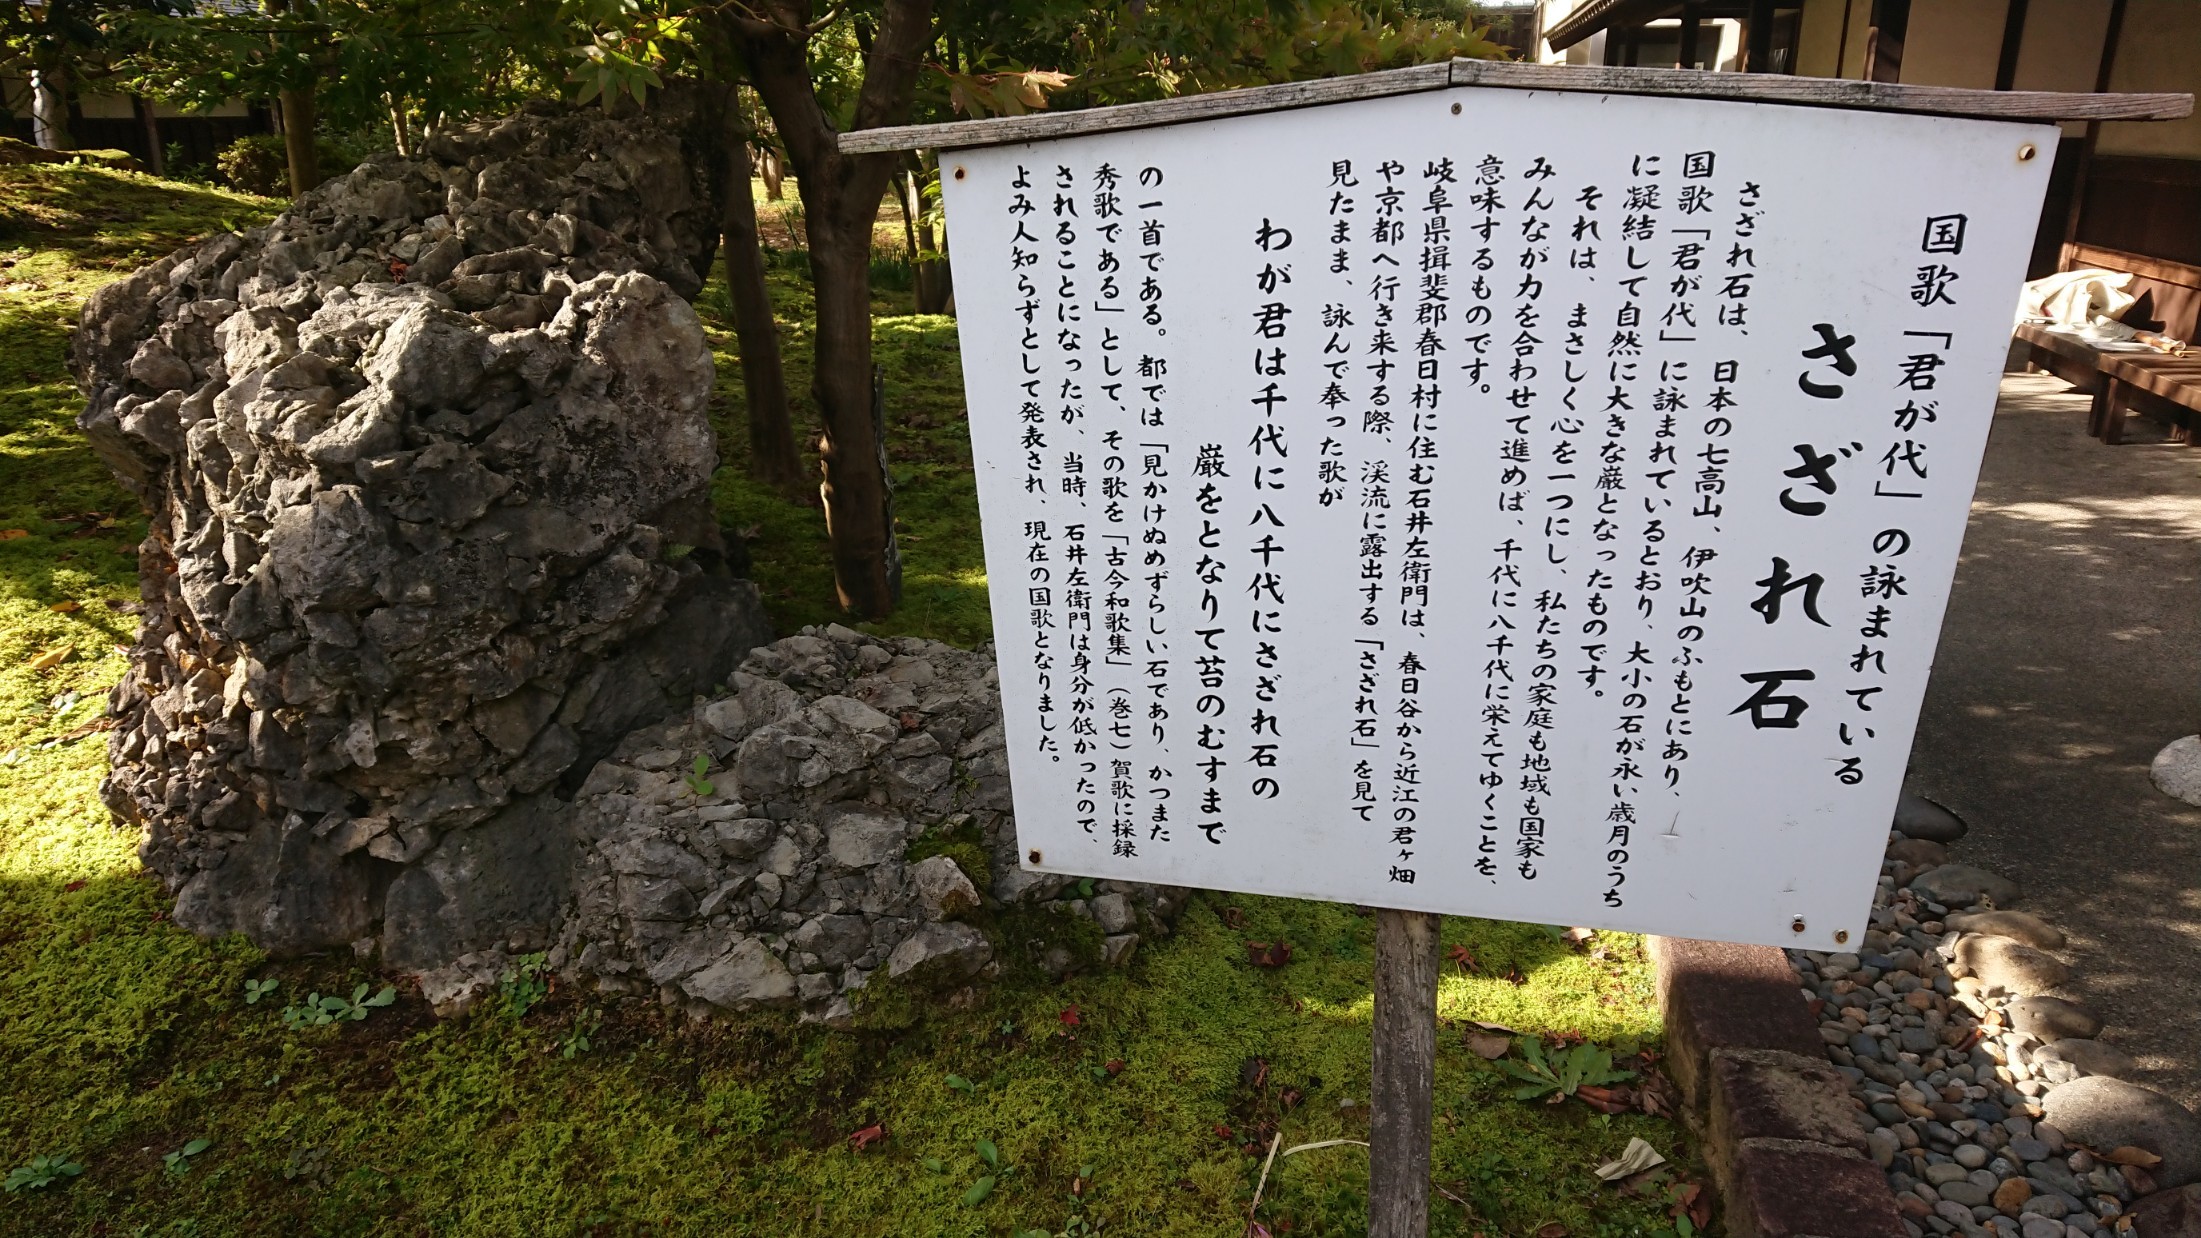 国歌「君が代」の詠まれている
さざれ石
さざれ石は、日本の七高山、伊吹山のふもとにあり、
国歌「君が代」に詠まれているとおり、大小の石が永い歳月のうち
に凝結して自然に大きな巌となったものです。
それは、まさしく心を一つにし、私たちの家庭も地域も国家も
みんなが力を合わせて進めば、千代に八千代に栄えてゆくことを、
意味するものです。
岐阜県揖斐郡春日村に住む石井左衛門は、春日谷から近江の君ヶ畑
や京都へ行き来する際、渓流に露出する「さざれ石」を見て
見たまま、詠んで奉った歌が
わが君は千代に八千代にさざれ石の
巌をとなりて苔のむすまで
の一首である。都では「見かけぬめずらしい石であり、かつまた
秀歌である」として、その歌を「古今和歌集」(巻七)賀歌に採録
されることになったが、当時、石井左衛門は身分が低かったので、
よみ人知らずとして発表され、現在の国歌となりました。